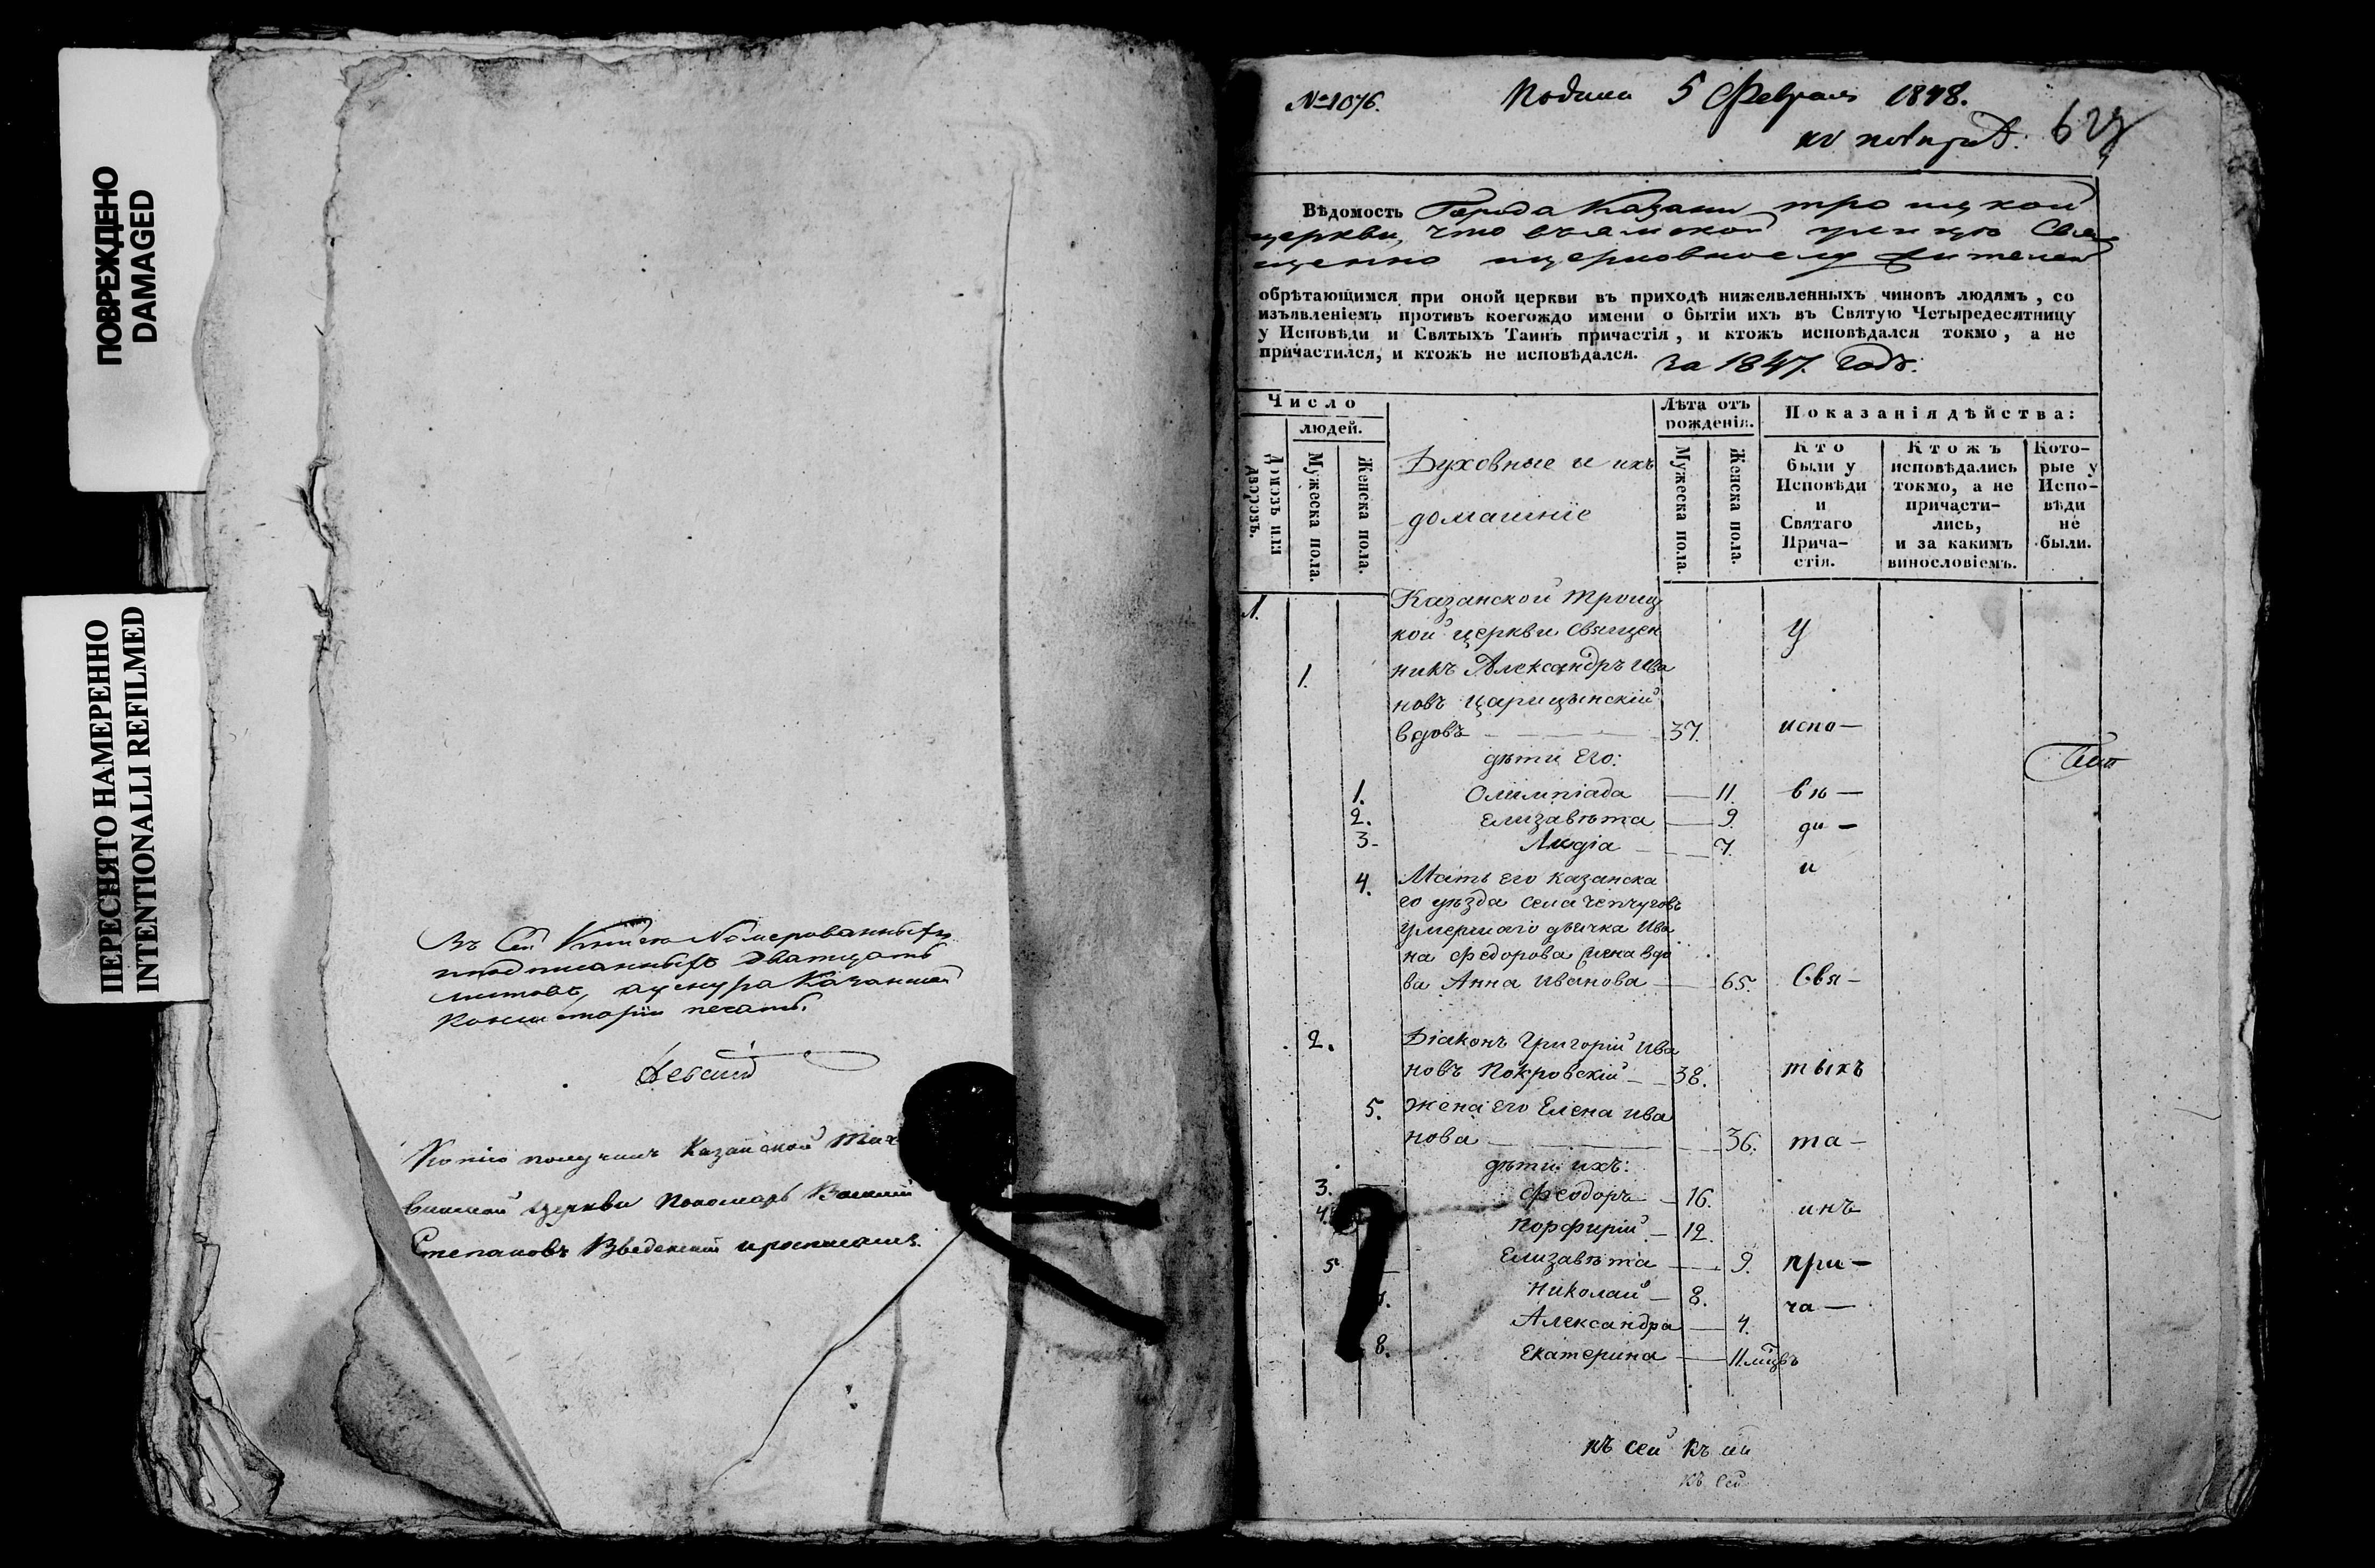 ПОВРЕЖДЕНО
DAMAGED
ПЕРЕСНЯТО НАМЕРЕННО
INTENTIONALLI REFILMED
Въ сей книгѣ номерованныхъ
листовъ, Казанской
Консисторіи печать.
Копію получилъ Казанской
церкви Пономарь Василій
Степановъ Введенскій
№ 1076.
Подана 5 Февраля 1848.
Вѣдомость Города Казани Троицкой
церкви, что улицы Свя
щенно церковно
обрѣтающимся при оной церкви въ приходѣ нижеявленныхъ чиновъ людямъ, со
изъявленіемъ противъ коегождо имени о бытіи ихъ въ Святую Четыредесятницу
у Исповѣди и Святыхъ Таинъ причастія, и ктожъ исповѣдался токмо, а не
причастился, и ктожъ не исповѣдался. за 1847. годъ.
Число
людей.
Домовъ или дворовъ.
Мужеска пола.
Женска пола.
Духовные и ихъ
домашніе
Лѣта отъ
рожденія.
Мужеска пола.
Женска пола.
Показанія дѣйства:
Кто
были у
Исповѣди
и
Святаго
Прича-
стія.
Ктожъ
исповѣдались
токмо, а не
причасти-
лись,
и за какимъ
винословіемъ.
Кото-
рые у
Испо-
вѣди
не
были.
1.
Казанской Троиц
кой церкви Священ
У
1. никъ Александръ Ива
новъ Царицынскій
вдовъ 37. испо—
дѣти его:
1. Олимпіада — 11. вѣ—
2. Елизавѣта — 9. ди—
3. Лидія — 7. и
4. Мать его Казанска
го уѣзда села Чепчуговъ
умершаго дьячка Ива
на Федорова жена вдо
ва Анна Иванова — 65. Свя—
2. Діаконъ Григорій Ива
новъ Покровскій — 38. тыхъ
5. Жена его Елена Ива
нова — 36. та—
дѣти ихъ:
3. Феодоръ — 16. инъ
4. Порфирій — 12.
Елизавѣта — 9. при—
5 Николай — 8. ча—
7. Александра — 4.
8. Екатерина — 11 мцвъ
къ сей къ сей
къ сей